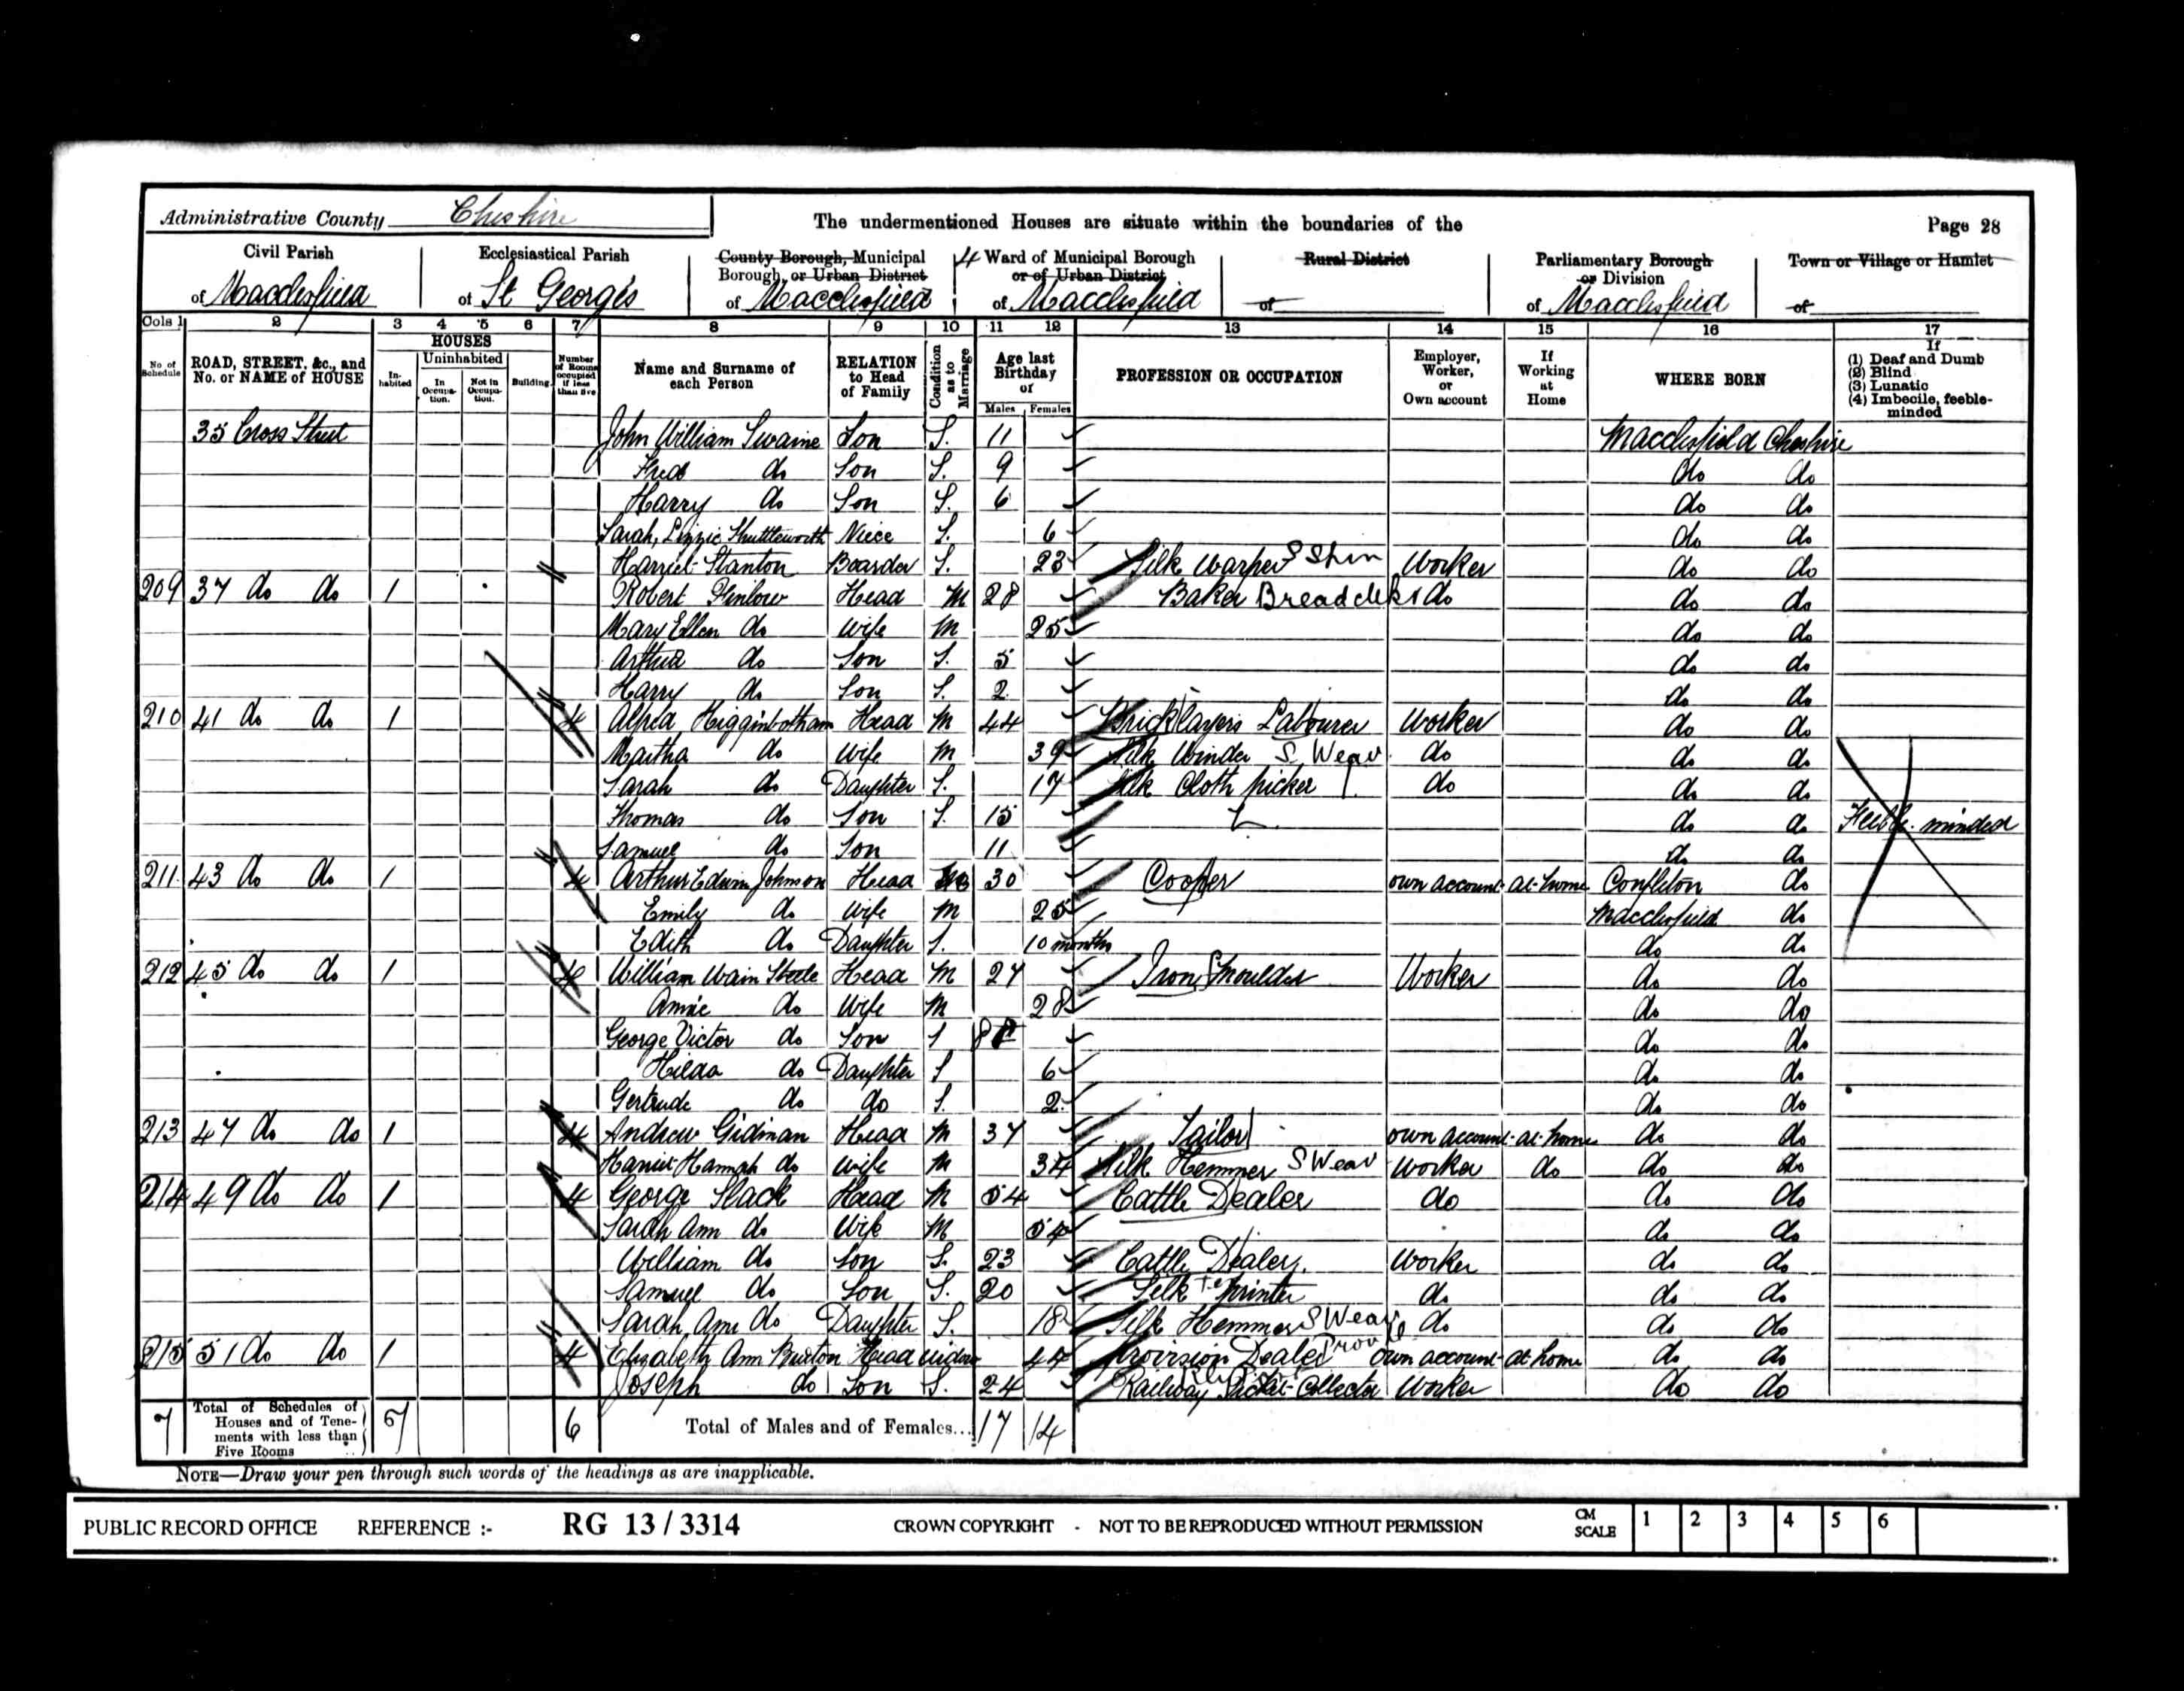 Administrative County Cheshire
The undermentioned Houses are situate within the boundaries of the
Page 28
Civil Parish of Macclesfield
Ecclesiastical Parish of St George's
County Borough, Municipal Borough, or Urban District of Macclesfield
4 Ward of Municipal Borough or of Urban District of Macclesfield
Rural District of
Parliamentary Borough or Division of Macclesfield
Town or Village or Hamlet of
Cols 1 2 3 4 5 6 7 8 9 10 11 12 13 14 15 16 17
No of Schedule
ROAD, STREET, &c., and No. or NAME of HOUSE
HOUSES
In-habited
Uninhabited
In Occupa-tion.
Not in Occupa-tion.
Building.
Number of Rooms occupied if less than five
Name and Surname of each Person
RELATION to Head of Family
Condition as to Marriage
Age last Birthday of
Males
Females
PROFESSION OR OCCUPATION
Employer, Worker, or Own account
If Working at Home
WHERE BORN
If
(1) Deaf and Dumb
(2) Blind
(3) Lunatic
(4) Imbecile, feeble-minded
35 Cross Street John William Swaine Son S. 11 Macclesfield Cheshire
Fred do Son S. 9 do do
Harry do Son S. 6 do do
Sarah Lizzie Shuttleworth Niece S. 6 do do
Harriet Stanton Boarder S. 23 Silk Warper S Spin Worker do do
209 37 do do 1 Robert Finlow Head M 28 Baker Bread do do do
Mary Ellen do Wife M 25 do do
Arthur do Son S. 5 do do
Harry do Son S. 2 do do
210 41 do do 1 4 Alfred Higginbotham Head M 44 Bricklayers Labourer Worker do do
Martha do Wife M 39 Silk Winder S. Weav do do do
Sarah do Daughter S. 17 Silk Cloth picker do do do
Thomas do Son S. 15 do do Feeble-minded
Samuel do Son 11 do do
211 43 do do 1 4 Arthur Edwin Johnson Head M 30 Cooper own account at home Congleton do
Emily do Wife M 25 Macclesfield do
Edith do Daughter S. 10 months do do
212 45 do do 1 4 William Wain Steele Head M 27 Iron Moulder Worker do do
Annie do Wife M 28 do do
George Victor do Son S 8 do do
Hilda do Daughter S 6 do do
Gertrude do do S. 2 do do
213 47 do do 1 4 Andrew Gidman Head M 37 Tailor own account at home do do
Harriet Hannah do Wife M 34 Silk Hemmer S Weav Worker do do do
214 49 do do 1 4 George Slack Head M 54 Cattle Dealer do do do
Sarah Ann do Wife M 54 do do
William do Son S. 23 Cattle Dealer. Worker do do
Samuel do Son S. 20 Silk printer do do do
Sarah Ann do Daughter S. 18 Silk Hemmer S Weav do do do
215 51 do do 1 4 Elizabeth Ann Burton Head widow Provision Dealer Prov own account at home do do
Joseph do Son S. 24 Railway Ticket Collector Worker do do
7
Total of Schedules of Houses and of Tene-ments with less than Five Rooms
6
Total of Males and of Females... 17 14
NOTE—Draw your pen through such words of the headings as are inapplicable.
PUBLIC RECORD OFFICE REFERENCE :- RG 13 / 3314 CROWN COPYRIGHT - NOT TO BE REPRODUCED WITHOUT PERMISSION CM SCALE 1 2 3 4 5 6